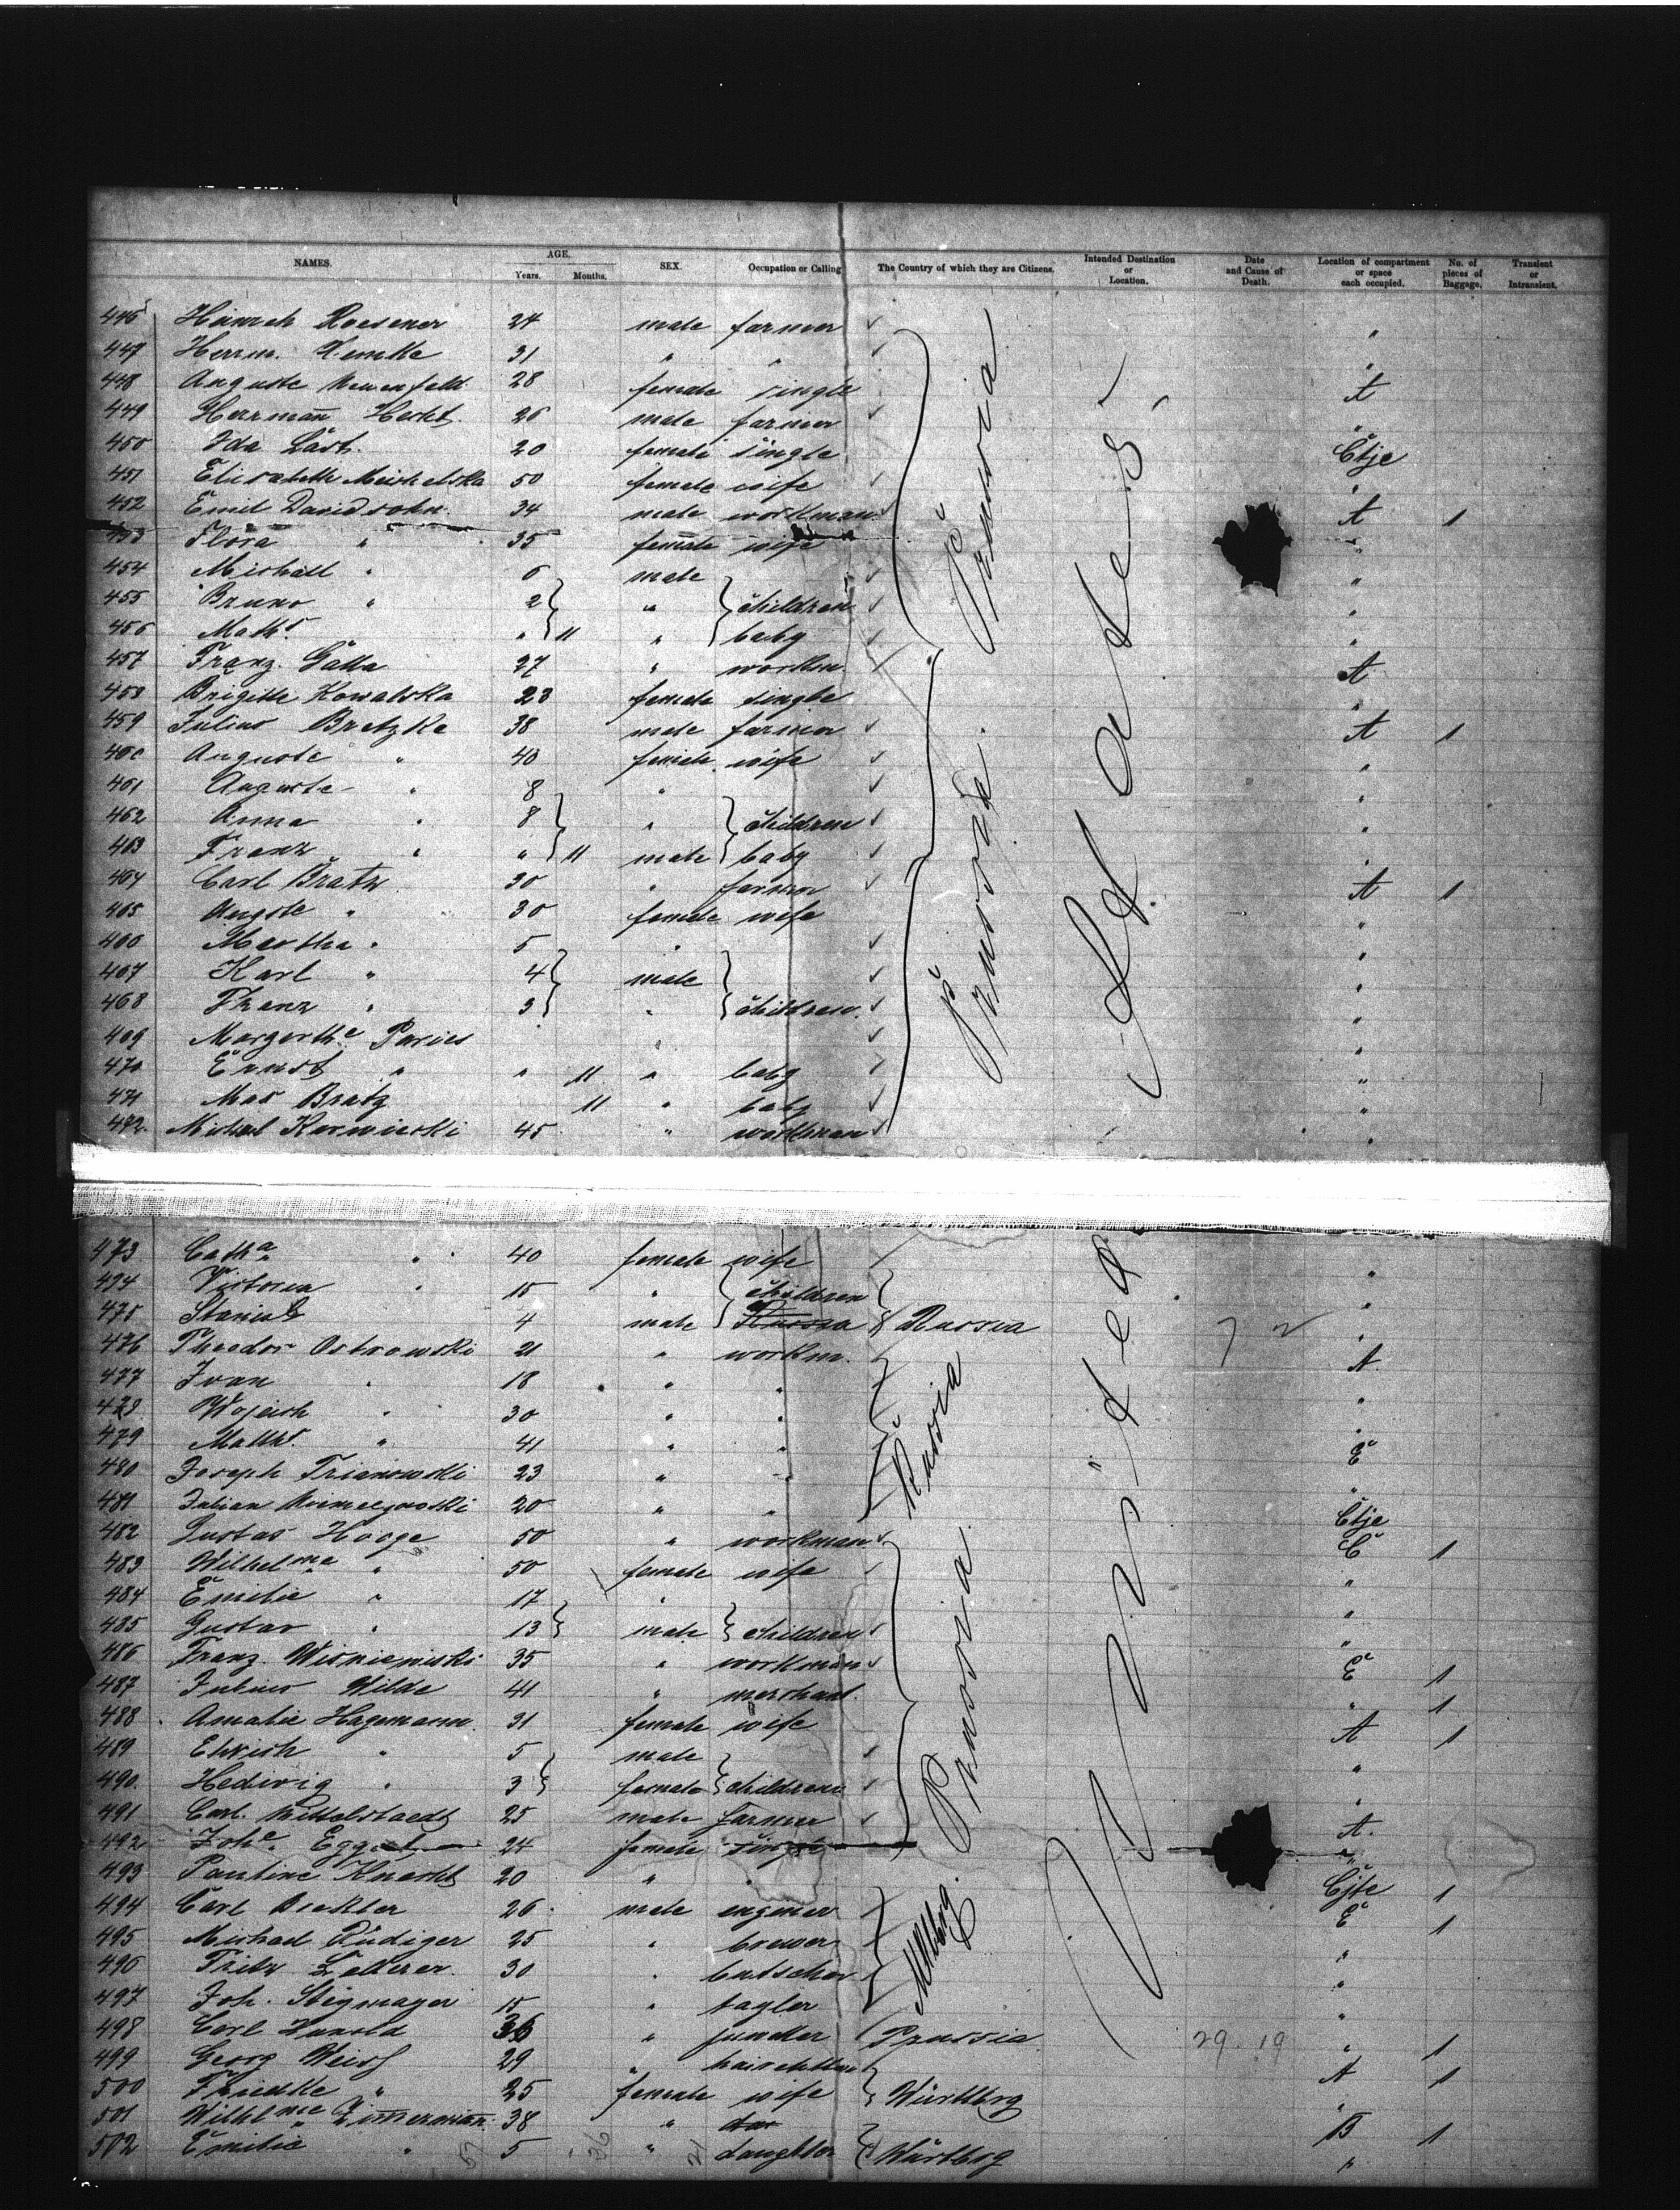 NAMES. AGE. Years. Months. SEX. Occupation or Calling The Country of which they are Citizens. Intended Destination or Location. Date and Cause of Death. Location of compartment or space each occupied. No. of pieces of Baggage. Transient or Intransient.
446 Heinrich Roesener 24 male farmer "
447 Herrm. Lemke 31 " " "
448 Auguste Neuenfeld 28 female single A
449 Herrmañ Hecht 26 male farmer "
450 Ida 20 female single Ctje
451 Elisabeth Meichelska 50 female wife "
452 Emil Davidsohn 34 male workman A 1
453 Flora " 35 female wife "
454 Michall " 6 male "
455 Bruno " 2 " children "
456 Maths " " 11 " baby "
457 Franz Galla 27 " workm. A
458 Brigitte Kowalska 23 female single "
459 Julius Bretzke 38 male farmer A 1
460 Auguste " 40 female wife "
461 Auguste " 8 " "
462 Anna " 8 " children "
463 Franz " " 11 male baby "
464 Carl Bratz 30 " farmer A 1
465 Auguste " 30 female wife "
466 Martha " 5 " "
467 Karl " 4 male "
468 Franz " 3 " children "
469 Margerthe Paries " "
470 Ernst " " 11 " baby "
471 Max Bratz 11 " baby "
472 Michael Karwieski 45 " workman "
Prussia
Prussia.
Prussia
States
473 Catha " 40 female wife
474 Victoria " 15 " children "
475 Stanisl 4 male Russia Russia "
476 Theodor Ostrowski 21 " workm. A
477 Ivan " 18 " "
478 Wojeich " 30 " " "
479 Matths " 41 " " E
480 Joseph Trianowski 23 " " "
481 Julian 20 " " Ctje
482 Gustav Hooge 50 " workman C 1
483 Wilhelme " 50 female wife "
484 Emilie " 17 " "
485 Gustav " 13 male children "
486 Franz Wisniewski 35 " workman E 1
487 Julius Wilde 41 " merchant " 1
488 Amalie Hagemann 31 female wife A 1
489 " 5 male "
490 Hedwig " 3 female children "
491 Carl Mittelstaedt 25 male farmer A.
492 Johe Eggert 24 female single "
493 Pauline Knecht 20 " " Ctje 1
494 Carl 26 male enginer E 1
495 Michael Rüdiger 25 " brewer "
496 Fritz Letterer 30 " butscher "
497 Joh. Stegmayer 15 " taylor "
498 Carl 36 " Prussia 29.19 " 1
499 Georg Weiss 29 " A 1
500 Friedke " 25 female wife Würtbbrg "
501 Wilhlme Zimmermañ 38 " B 1
502 Emilie " 5 " daughter Würtbrg "
Russia
Prussia
United